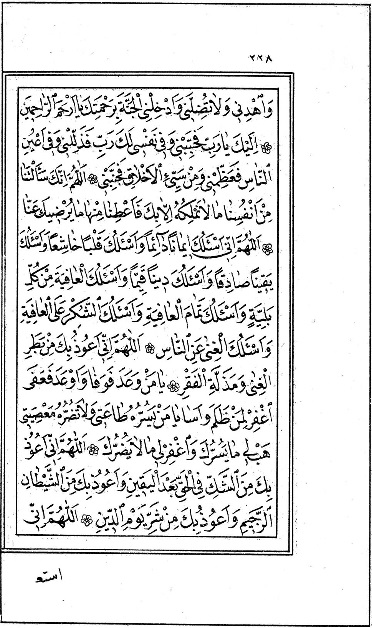 ٢٢٨
وَٱهْدِنِي وَلَا تُضِلَّنِي وَأَدْخِلْنِي ٱلْجَنَّةَ بِرَحْمَتِكَ يَا أَرْحَمَ ٱلرَّاحِمِينَ
۞ إِلَيْكَ يَا رَبِّ فَحَبِّبْنِي وَفِي نَفْسِي لَكَ رَبِّ فَذَلِّلْنِي وَفِي أَعْيُنِ
ٱلنَّاسِ فَعَظِّمْنِي وَمِنْ سَيِّئِ ٱلْأَخْلَاقِ فَجَنِّبْنِي ۞ ٱللّٰهُمَّ إِنَّكَ سَأَلْتَنَا
مِنْ أَنْفُسِنَا مَا لَا نَمْلِكُهُ إِلَّا بِكَ فَأَعْطِنَا مِنْهَا مَا يُرْضِيكَ عَنَّا
۞ ٱللّٰهُمَّ إِنِّي أَسْئَلُكَ إِيمَانًا دَائِمًا وَأَسْئَلُكَ قَلْبًا خَاشِعًا وَأَسْئَلُكَ
يَقِينًا صَادِقًا وَأَسْئَلُكَ دِينًا قَيِّمًا وَأَسْئَلُكَ ٱلْعَافِيَةَ مِنْ كُلِّ
بَلِيَّةٍ وَأَسْئَلُكَ تَمَامَ ٱلْعَافِيَةِ وَأَسْئَلُكَ ٱلشُّكْرَ عَلَى ٱلْعَافِيَةِ
وَأَسْئَلُكَ ٱلْغِنَى عَنِ ٱلنَّاسِ ۞ ٱللّٰهُمَّ إِنِّي أَعُوذُ بِكَ مِنْ بَطَرِ
ٱلْغِنَى وَمَذَلَّةِ ٱلْفَقْرِ ۞ يَا مَنْ وَعَدَ فَوَفَا وَأَوْعَدَ فَعَفَى
ٱغْفِرْ لِمَنْ ظَلَمَ وَأَسَا يَا مَنْ يَسُرُّهُ طَاعَتِي وَلَا تَضُرُّهُ مَعْصِيَتِي
هَبْ لِي مَا يَسُرُّكَ وَٱغْفِرْ لِي مَا لَا يَضُرُّكَ ۞ ٱللّٰهُمَّ إِنِّي أَعُوذُ
بِكَ مِنَ ٱلشَّكِّ فِي ٱلْحَقِّ بَعْدَ ٱلْيَقِينِ وَأَعُوذُ بِكَ مِنَ ٱلشَّيْطَانِ
ٱلرَّجِيمِ وَأَعُوذُ بِكَ مِنْ شَرِّ يَوْمِ ٱلدِّينِ ۞ ٱللّٰهُمَّ إِنِّي